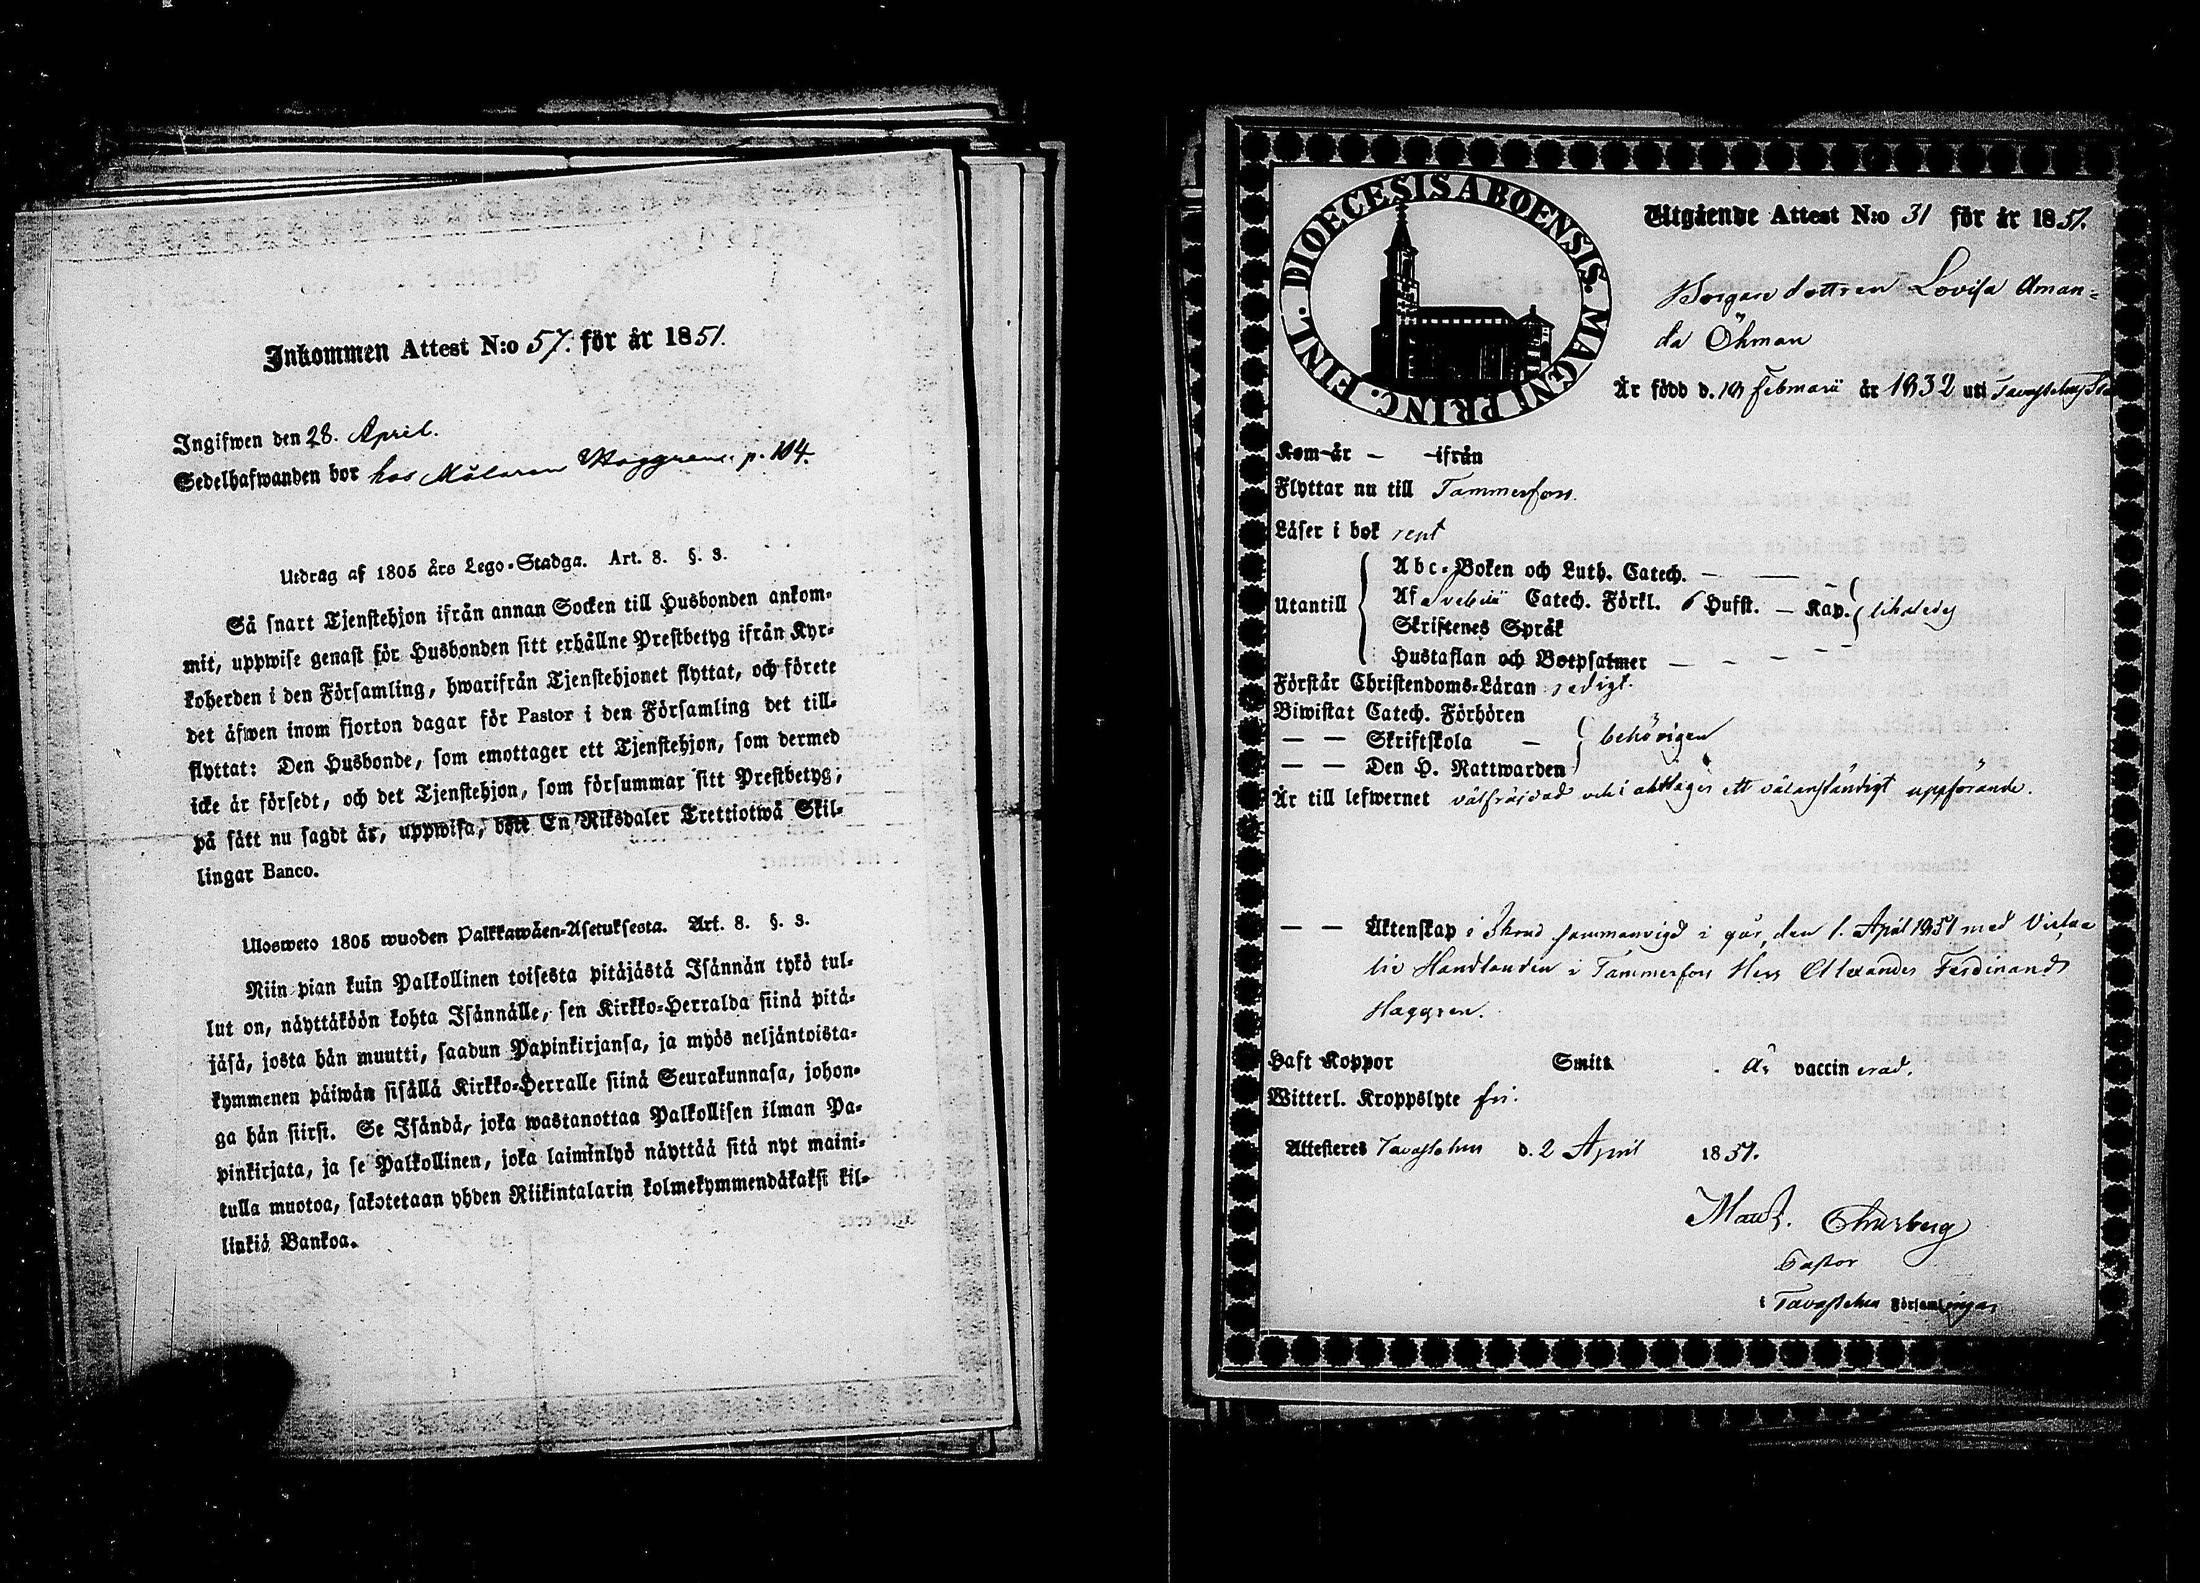 Inkommen Attest N:o 57. för år 1851.
Ingifwen den 28. April.
Sedelhafwanden bor hos Målaren Haggren. p. 104.
Utdrag af 1805 års Lego-Stadga. Art. 8. §. 3.
Så snart Tjenstehjon ifrån annan Socken till Husbonden ankom-
mit, uppwise genast för Husbonden sitt erhållne Prestbetyg ifrån Kyr-
koherden i den Församling, hwarifrån Tjenstehjonet flyttat, och förete
det äfwen inom fjorton dagar för Pastor i den Församling det till-
flyttat: Den Husbonde, som emottager ett Tjenstehjon, som dermed
icke är försedt, och det Tjenstehjon, som försummar sitt Prestbetyg,
på sätt nu sagdt är, uppwisa, böte En Riksdaler Trettiotwå Skil-
lingar Banco.
Ulosweto 1805 wuoden Palkkawäen-Asetuksesta. Art. 8. §. 3.
Niin pian kuin Palkollinen toisesta pitäjästä Isännän tykö tul-
lut on, näyttäköön kohta Isännälle, sen Kirkko-Herralda siinä pitä-
jäsä, josta hän muutti, saadun Papinkirjansa, ja myös neljäntoista-
kymmenen päiwän sisällä Kirkko-Herralle siinä Seurakunnasa, johon-
ga hän siirsi. Se Isändä, joka wastanottaa Palkollisen ilman Pa-
pinkirjata, ja se Palkollinen, joka laiminlyö näyttää sitä nyt maini-
tulla muotoa, sakotetaan yhden Riikintalarin kolmekymmendäkaksi kil-
linkiä Bankoa.
DIOECESIS ABOENSIS. MAGNI PRINC. FINL.
Utgående Attest N:o 31 för år 1851.
Borgare dottren Lovisa Aman-
da Öhman
Är född d. 18 Februarii år 1832 uti Tavastehus Stad
Kom år - ifrån
Flyttar nu till Tammerfors.
Läser i bok rent
Utantill
Abc-Boken och Luth. Catech. -
Af Svebelii Catech. Förkl. Husst. - Kap. likaledes
Skriftenes Språk
Hustaflan och Botpsalmer -
Förstår Christendoms-Läran redigt.
Biwistat Catech. Förhören
— — Skriftskola - behörigen
— — Den H. Nattwarden
Är till lefwernet välfräjdad och i akttager ett välanständigt uppförande.
— — Äktenskap i Åbond sammanvigd i går, den 1. April 1851 med Victua-
lie Handlanden i Tammerfors Herr Alexander Ferdinand
Haggren.
Haft Koppor Smitt Är vaccinerad.
Witterl. Kroppslyte fri.
Attesteres Tavastehus d. 2 April 1851.
Maur. Churberg
Pastor
i Tavastehus Församlingar